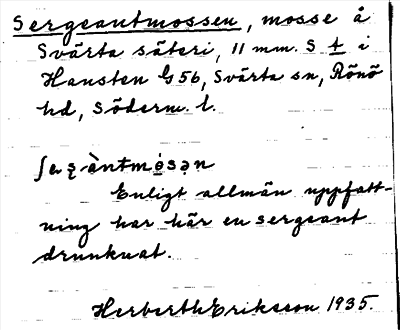 Sergeantmossen, mosse å
Svärta säteri, 11 mm. S + i
Hansten G 56, Svärta sn, Rönö
hd, Söderm. l.
Enligt allmän uppfatt-
ning har här en sergeant
drunknat.
Herberth Eriksson 1935.